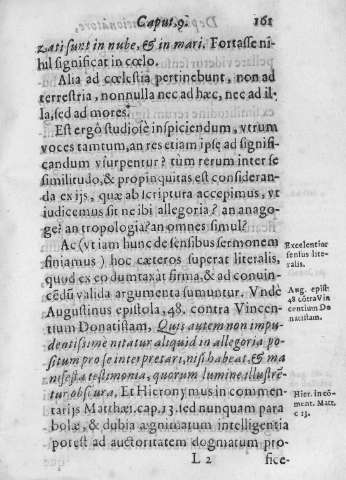 Caput.9. 161
zati sunt in nube, & in mari. Fortasse ni-
hil significat in cœlo.
Alia ad cœlestia pertinebunt, non ad
terrestria, nonnulla nec ad hæc, nec ad il-
la, sed ad mores.
Est ergò studiosè inspiciendum, vtrum
voces tamtum, an res etiam ipsę ad signifi-
candum vsurpentur? tùm rerum inter se
similitudo, & propinquitas est consideran-
da ex ijs, quæ ab scriptura accepimus, vt
iudicemus sit ne ibi allegoria? an anago-
ge? an tropologia? an omnes simul?
Ac (vt iam hunc de sensibus sermonem
finiamus) hoc cæteros superat literalis,
quod ex eo dumtaxat firma, & ad conuin-
cẽdũ valida argumenta sumuntur. Vndè
Augustinus epistola, 48. contra Vincen-
tium Donatistam, Quis autem non impu-
dentissimè nitatur aliquid in allegoria po-
situm pro se interpretari, nisi habeat, & ma
nifesta testimonia, quorum lumine illustrẽ
tur obscura. Et Hieronymus in commen-
tarijs Matthæi. cap. 13. sed nunquam para
bolæ, & dubia ænigmatum intelligentia
potest ad auctoritatem dogmatum pro-
L 2 fice-
Excelentior
sensus lite-
ralis.
Aug. epist.
48 cõtra Vin
centium Do
natistam.
Hier. in cõ-
ment. Matt.
c 13.